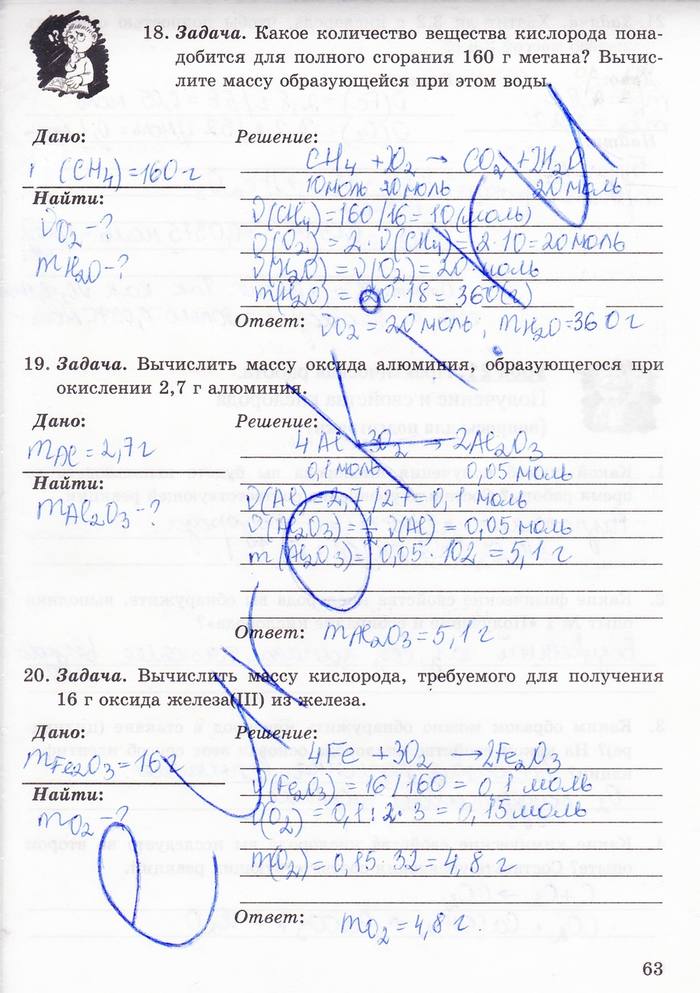 18. Задача. Какое количество вещества кислорода пона-
добится для полного сгорания 160 г метана? Вычис-
лите массу образующейся при этом воды.
Дано:
(CH₄)=160 г
Найти:
νO₂-?
mH₂O-?
Решение:
CH₄ + 2O₂ → CO₂ + 2H₂O
10 моль 20 моль 20 моль
ν(CH₄)=160/16=10(моль)
ν(O₂)=2·ν(CH₄)=2·10=20 моль
ν(H₂O)=ν(O₂)=20 моль
m(H₂O)=20·18=360(г)
Ответ: νO₂=20 моль, mH₂O=360 г
19. Задача. Вычислить массу оксида алюминия, образующегося при
окислении 2,7 г алюминия.
Дано:
mAl=2,7 г
Найти:
mAl₂O₃-?
Решение:
4Al + 3O₂ → 2Al₂O₃
0,1 моль 0,05 моль
ν(Al)=2,7/27=0,1 моль
ν(Al₂O₃)=½ν(Al)=0,05 моль
m(Al₂O₃)=0,05·102=5,1 г
Ответ: mAl₂O₃=5,1 г
20. Задача. Вычислить массу кислорода, требуемого для получения
16 г оксида железа(III) из железа.
Дано:
mFe₂O₃=16 г
Найти:
mO₂-?
Решение:
4Fe + 3O₂ → 2Fe₂O₃
ν(Fe₂O₃)=16/160=0,1 моль
ν(O₂)=0,1:2·3=0,15 моль
m(O₂)=0,15·32=4,8 г
Ответ: mO₂=4,8 г.
63